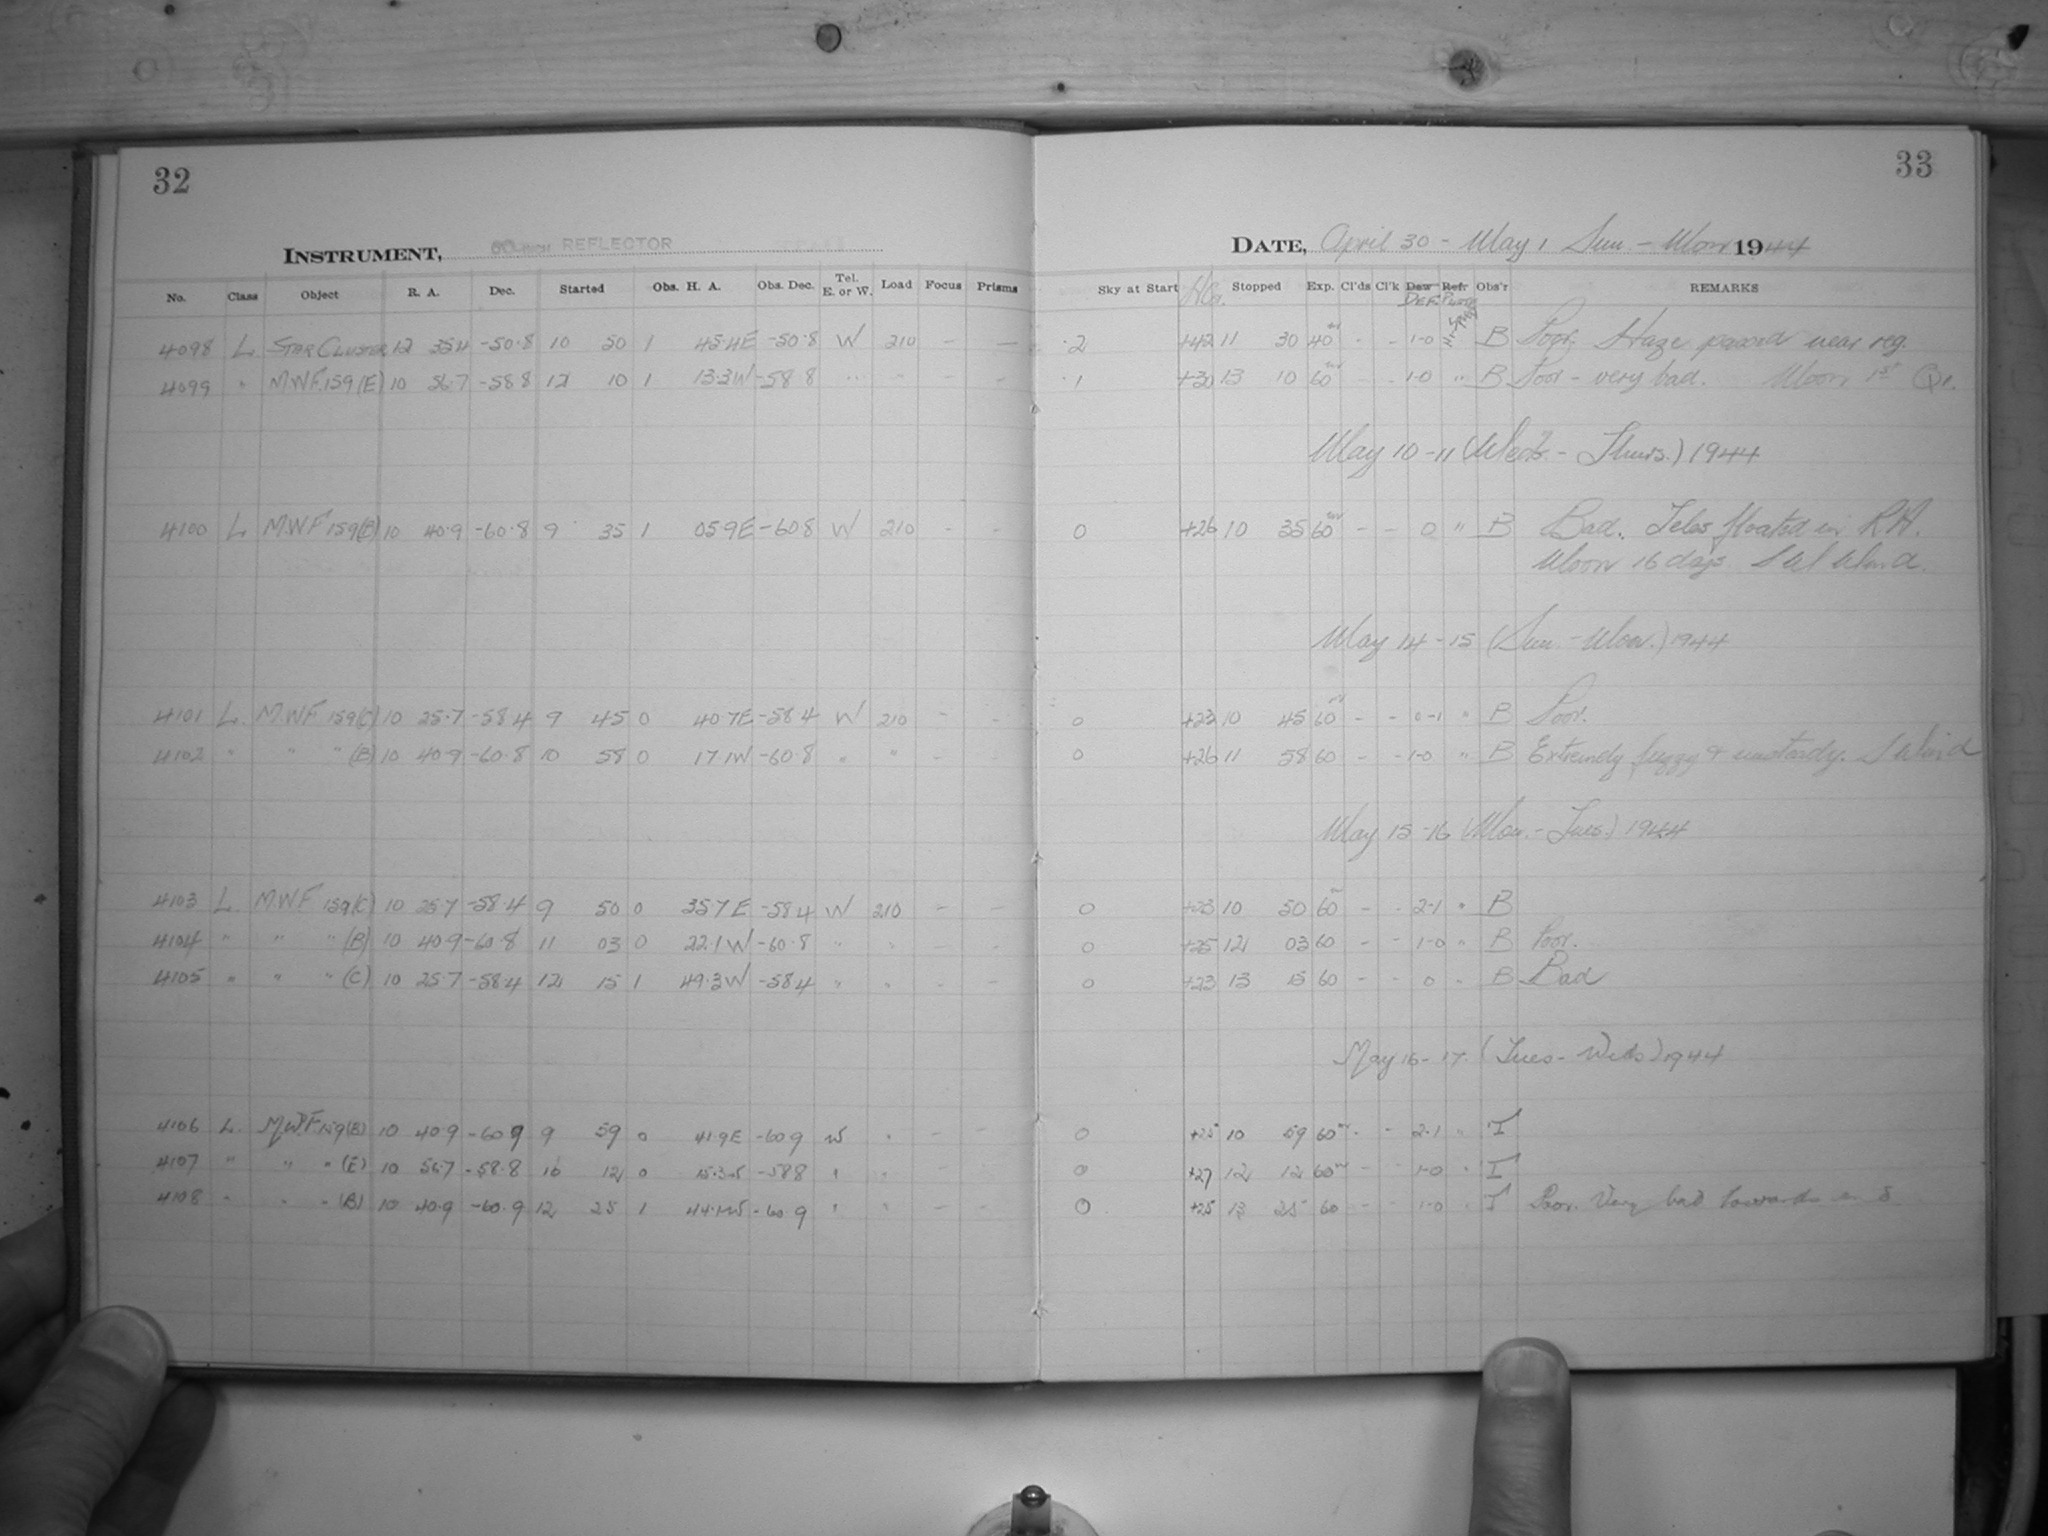 32
33
INSTRUMENT, 60 INCH REFLECTOR
DATE, April 30 - May 1 Sun - Mon 1944
No. Class Object R. A. Dec. Started Obs. H. A. Obs. Dec. Tel. E. or W. Load Focus Prisms Sky at Start Stopped Exp. Cl'ds Cl'k Dew Refr Obs'r REMARKS
4098 L STAR CLUSTER 12 -50.8 10 50 1 45.4E -50.8 W 210 - - 2 +42 11 30 40 - - 1-0 B Poor. Haze passed near reg.
4099 " M.W.F. 159 (E) 10 56.7 -58.8 12 10 1 13.3W -58.8 " " - - 1 +30 13 10 60 - - 1-0 " B Poor - very bad. Moon 1st Qr.
May 10-11 (Wed. - Thurs.) 1944
4100 L M.W.F 159(B) 10 40.9 -60.8 9 35 1 05.9E -60.8 W 210 - - 0 +26 10 35 60 - - 0 " B Bad. Teles floated in R.A.
Moon 16 days. S W Wind.
May 14-15 (Sun. - Mon.) 1944
4101 L. M.W.F 159(C) 10 25.7 -58.4 9 45 0 40.7E -58.4 W 210 - - 0 +23 10 45 60 - - 0-1 " B Poor.
4102 " " " (B) 10 40.9 -60.8 10 58 0 17.1W -60.8 " " 0 +26 11 58 60 - - 1-0 " B Extremely fuzzy & unsteady. S Wind
May 15-16 (Mon. - Tues.) 1944
4103 L. M.W.F 159(C) 10 25.7 -58.4 9 50 0 35.7E -58.4 W 210 - - 0 +23 10 50 60 - - 2-1 " B
4104 " " " (B) 10 40.9 -60.8 11 03 0 22.1W -60.8 " " - - 0 +25 12 03 60 - - 1-0 " B Poor.
4105 " " " (C) 10 25.7 -58.4 12 15 1 49.3W -58.4 " " - - 0 +23 13 15 60 - - 0 " B Bad
May 16-17. (Tues - Weds) 1944
4106 L. M.W.F. 159(B) 10 40.9 -60.9 9 59 0 41.9E -60.9 W " - - 0 +25 10 59 60 - - 2-1 " I
4107 " " " (E) 10 56.7 -58.8 12 0 15.3W -58.8 " " - - 0 +27 12 12 60 - - 1-0 " I
4108 " " " (B) 10 40.9 -60.9 12 25 1 44.1W -60.9 " " - - 0 +25 13 25 60 - - 1-0 " I Poor. Very bad towards